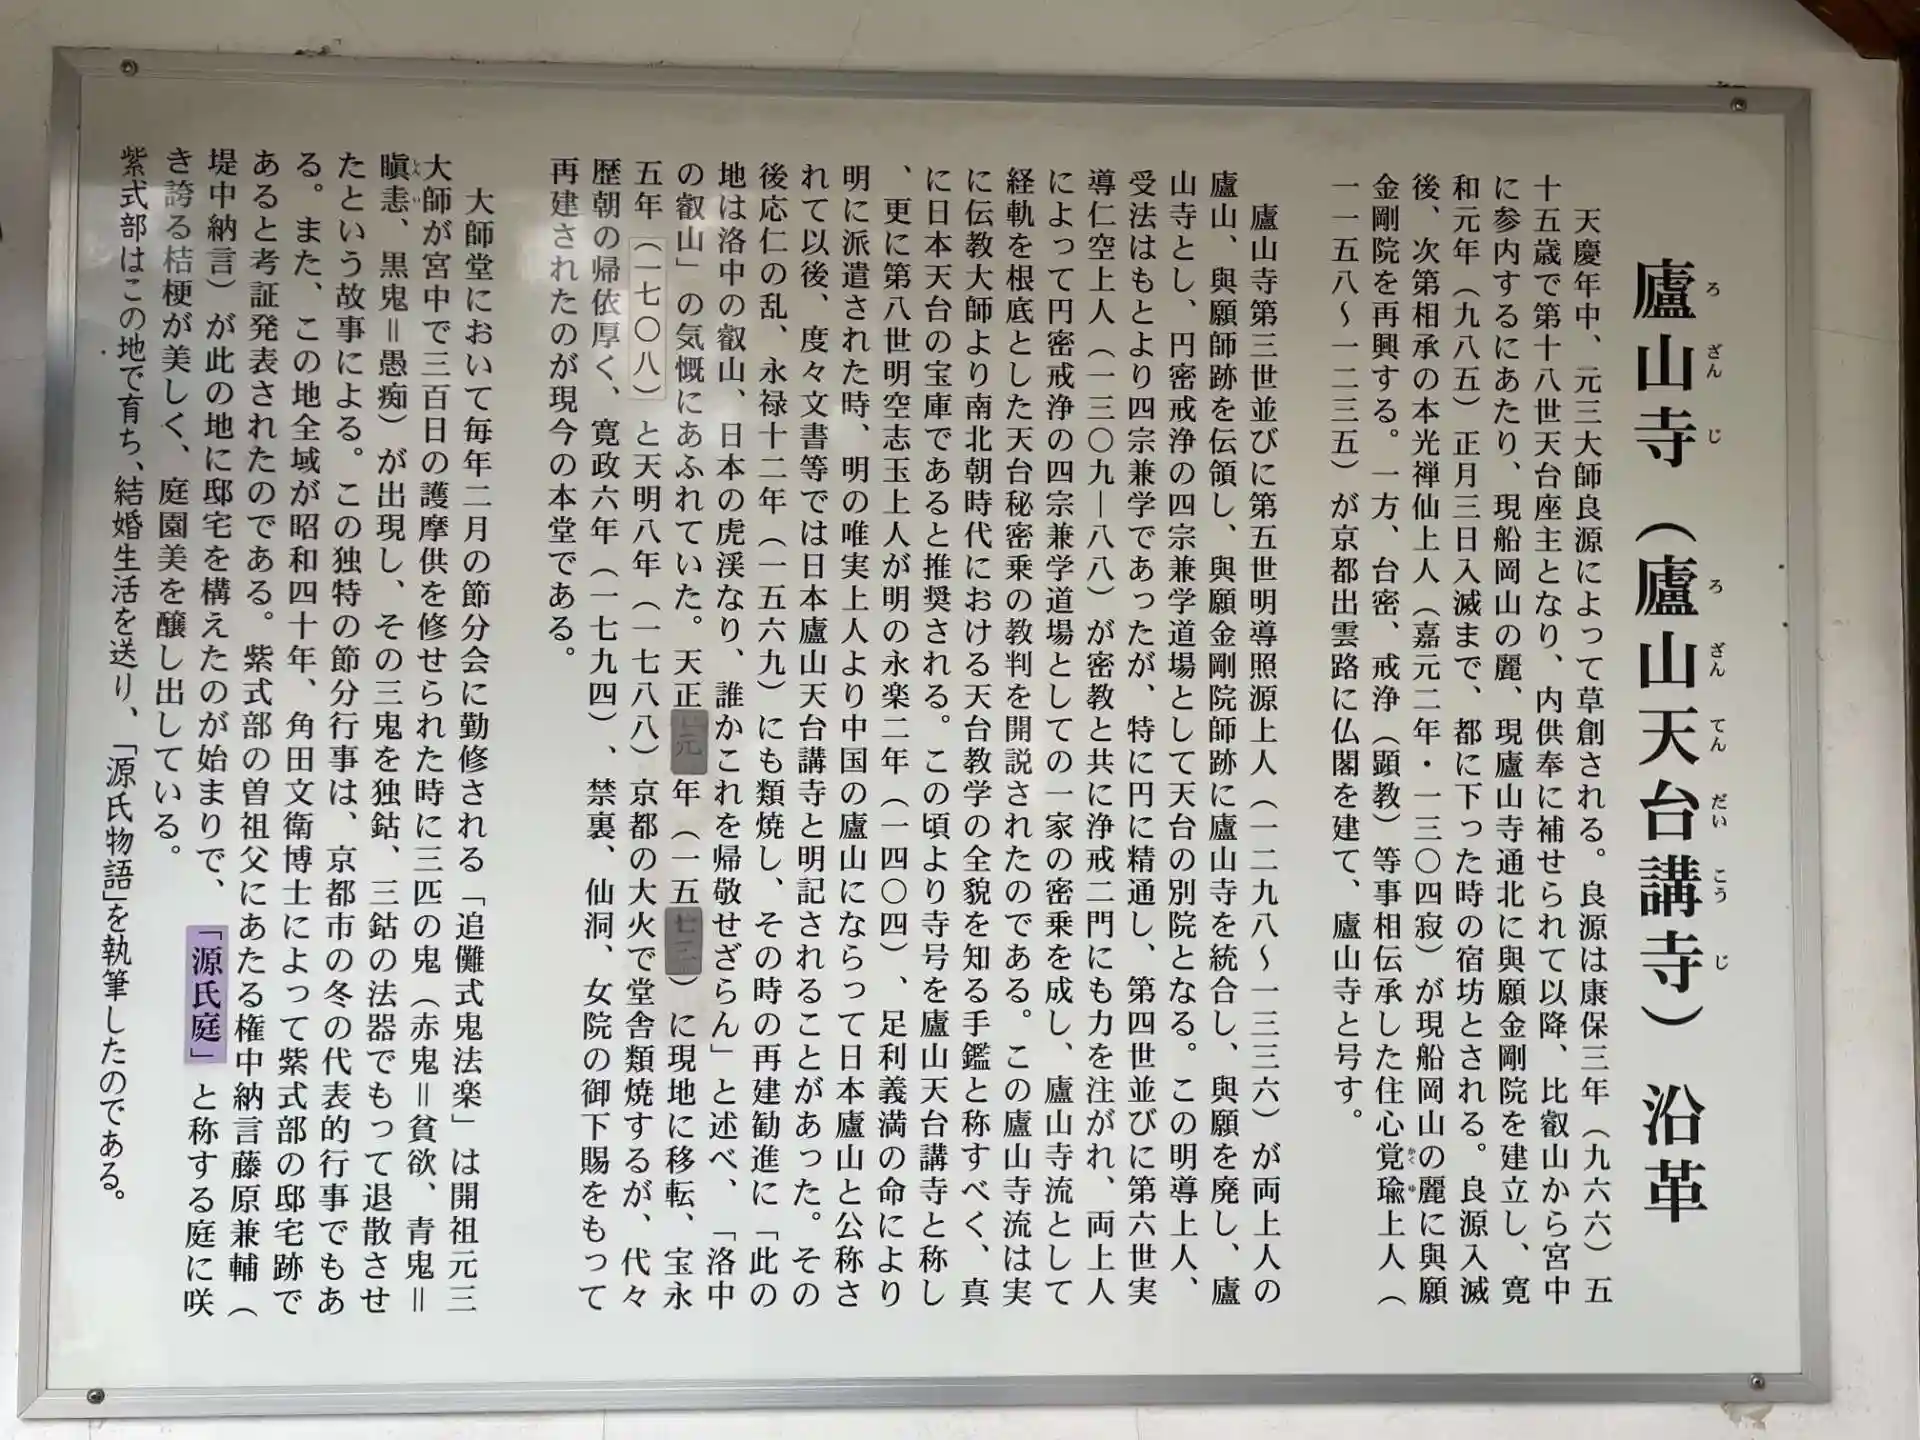 廬山寺（廬山天台講寺）沿革
ろざんじ ろざんてんだいこうじ
天慶年中、元三大師良源によって草創される。良源は康保三年（九六六）五
十五歳で第十八世天台座主となり、内供奉に補せられて以降、比叡山から宮中
に参内するにあたり、現船岡山の麗、現廬山寺通北に與願金剛院を建立し、寛
和元年（九八五）正月三日入滅まで、都に下った時の宿坊とされる。良源入滅
後、次第相承の本光禅仙上人（嘉元二年・一三〇四寂）が現船岡山の麗に與願
金剛院を再興する。一方、台密、戒浄（顕教）等事相伝承した住心覚瑜上人（
かくゆ
一一五八～一二三五）が京都出雲路に仏閣を建て、廬山寺と号す。
廬山寺第三世並びに第五世明導照源上人（一二九八～一三三六）が両上人の
廬山、與願師跡を伝領し、與願金剛院師跡に廬山寺を統合し、與願を廃し、廬
山寺とし、円密戒浄の四宗兼学道場として天台の別院となる。この明導上人、
受法はもとより四宗兼学であったが、特に円に精通し、第四世並びに第六世実
導仁空上人（一三〇九―八八）が密教と共に浄戒二門にも力を注がれ、両上人
によって円密戒浄の四宗兼学道場としての一家の密乗を成し、廬山寺流として
経軌を根底とした天台秘密乗の教判を開説されたのである。この廬山寺流は実
に伝教大師より南北朝時代における天台教学の全貌を知る手鑑と称すべく、真
に日本天台の宝庫であると推奨される。この頃より寺号を廬山天台講寺と称し
、更に第八世明空志玉上人が明の永楽二年（一四〇四）、足利義満の命により
明に派遣された時、明の唯実上人より中国の廬山にならって日本廬山と公称さ
れて以後、度々文書等では日本廬山天台講寺と明記されることがあった。その
後応仁の乱、永禄十二年（一五六九）にも類焼し、その時の再建勧進に「此の
地は洛中の叡山、日本の虎渓なり、誰かこれを帰敬せざらん」と述べ、「洛中
の叡山」の気慨にあふれていた。天正元年（一五七三）に現地に移転、宝永
五年（一七〇八）と天明八年（一七八八）京都の大火で堂舎類焼するが、代々
歴朝の帰依厚く、寛政六年（一七九四）、禁裏、仙洞、女院の御下賜をもって
再建されたのが現今の本堂である。
大師堂において毎年二月の節分会に勤修される「追儺式鬼法楽」は開祖元三
大師が宮中で三百日の護摩供を修せられた時に三匹の鬼（赤鬼＝貧欲、青鬼＝
瞋恚、黒鬼＝愚痴）が出現し、その三鬼を独鈷、三鈷の法器でもって退散させ
しんい
たという故事による。この独特の節分行事は、京都市の冬の代表的行事でもあ
る。また、この地全域が昭和四十年、角田文衛博士によって紫式部の邸宅跡で
あると考証発表されたのである。紫式部の曽祖父にあたる権中納言藤原兼輔（
堤中納言）が此の地に邸宅を構えたのが始まりで、「源氏庭」と称する庭に咲
き誇る桔梗が美しく、庭園美を醸し出している。
紫式部はこの地で育ち、結婚生活を送り、「源氏物語」を執筆したのである。